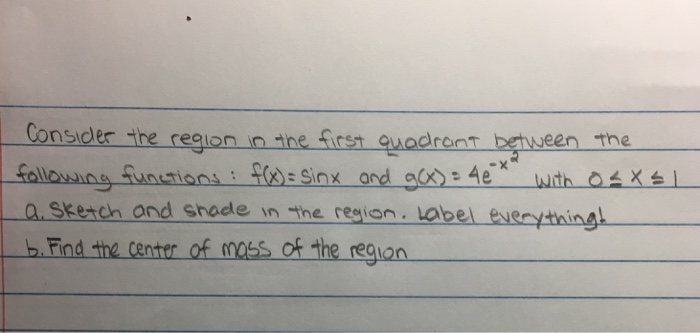 Consider the region in the first quadrant between the
following functions : f(x) = sinx and g(x) = 4e^-x^2 with 0 ≤ x ≤ 1
a. Sketch and shade in the region. Label everything!
b. Find the center of mass of the region